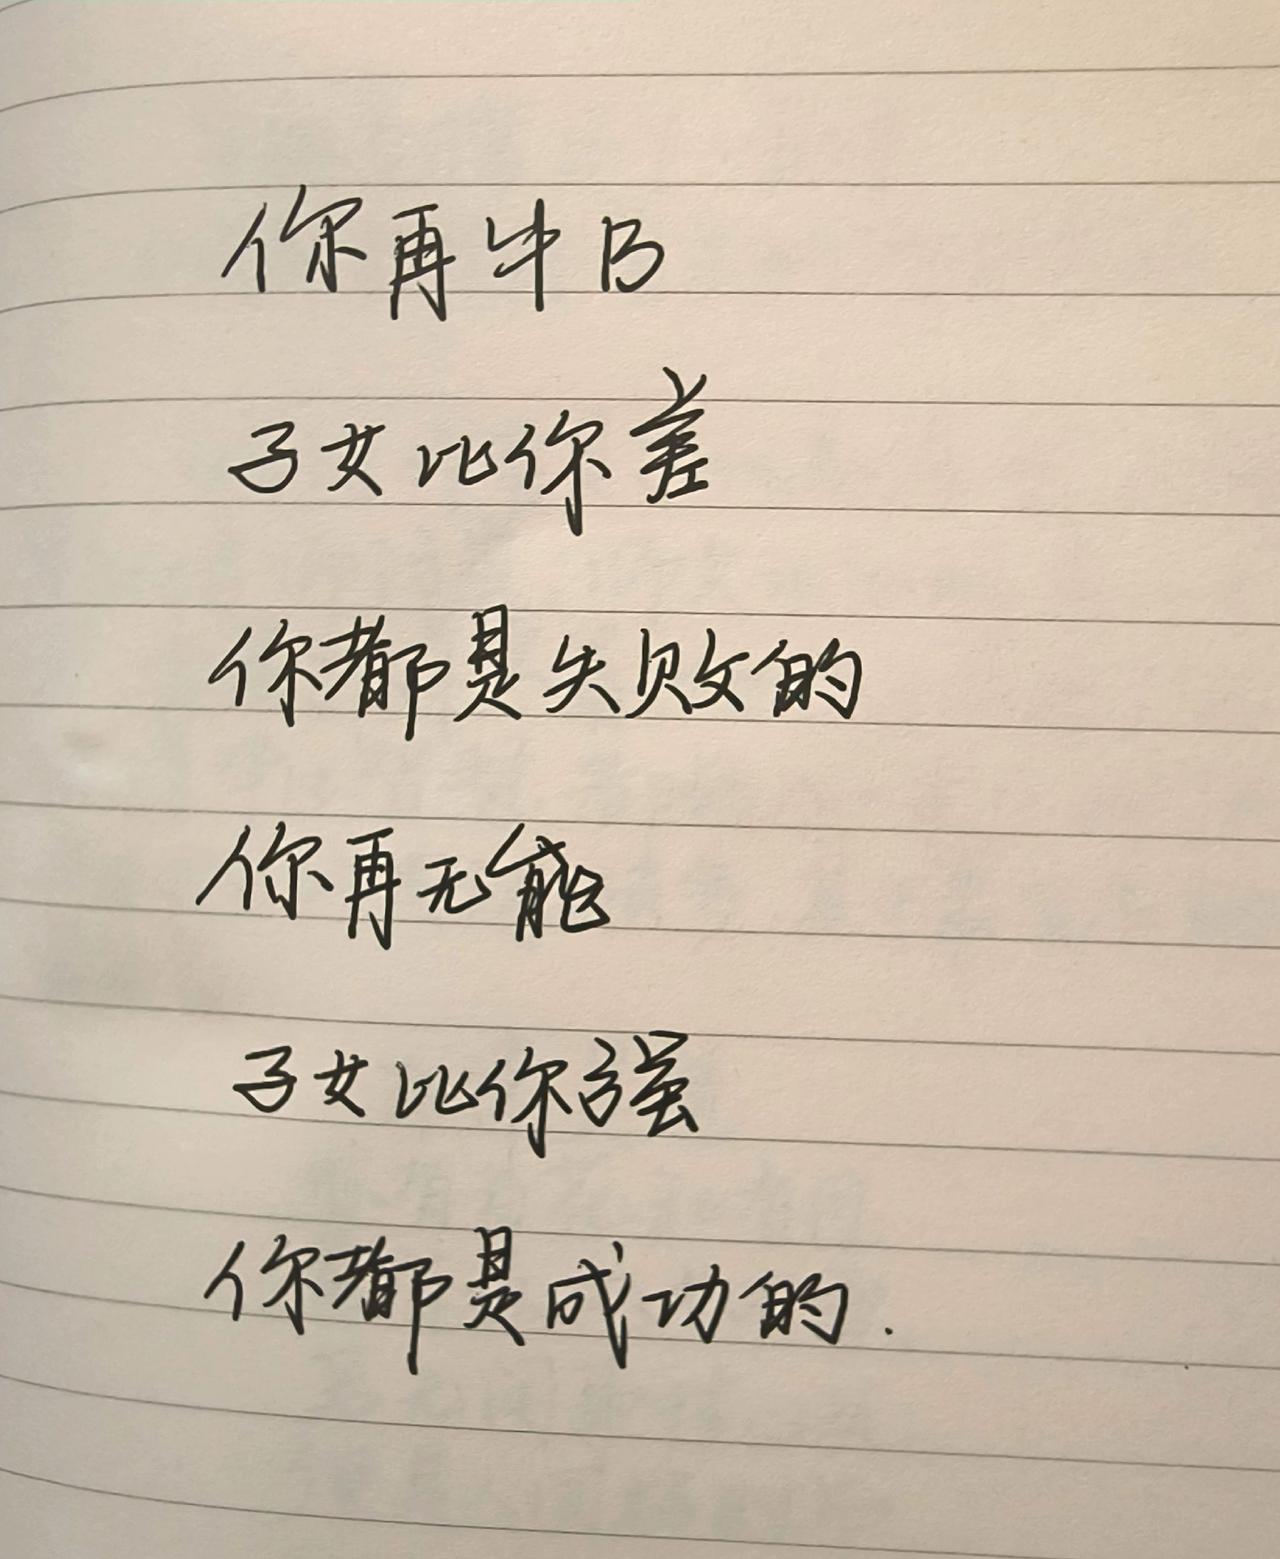 你再牛B
子女比你差
你都是失败的
你再无能
子女比你强
你都是成功的.